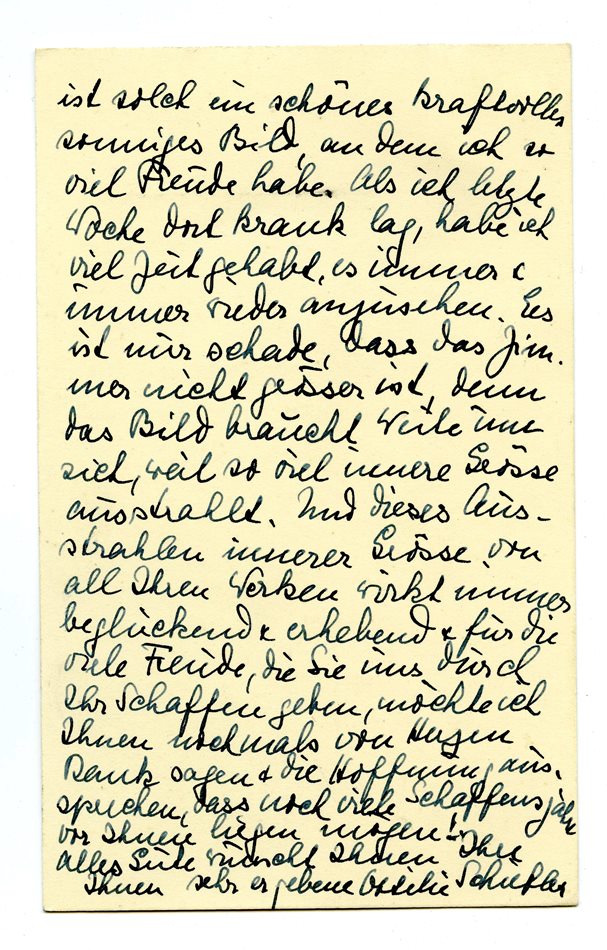 ist solch ein schönes kraftvolles
sonniges Bild, an dem ich so
viel Freude habe. Als ich letzte
Woche dort krank lag, habe ich
viel Zeit gehabt, es immer &
immer wieder anzusehen. Es
ist nur schade, dass das Zim-
mer nicht grösser ist, denn
das Bild braucht Weite um
sich, weil so viel innere Grösse
ausstrahlt. Und dieses Aus-
strahlen innerer Grösse von
all Ihren Werken wirkt immer
beglückend & erhebend & für die
viele Freude, die Sie uns durch
Ihr Schaffen geben, möchte ich
Ihnen nochmals von Herzen
Dank sagen & die Hoffnung aus-
sprechen, dass noch viele Schaffensjahre
vor Ihnen liegen mögen!
Alles Gute wünscht Ihnen Ihre
Ihnen sehr ergebene Ottilie